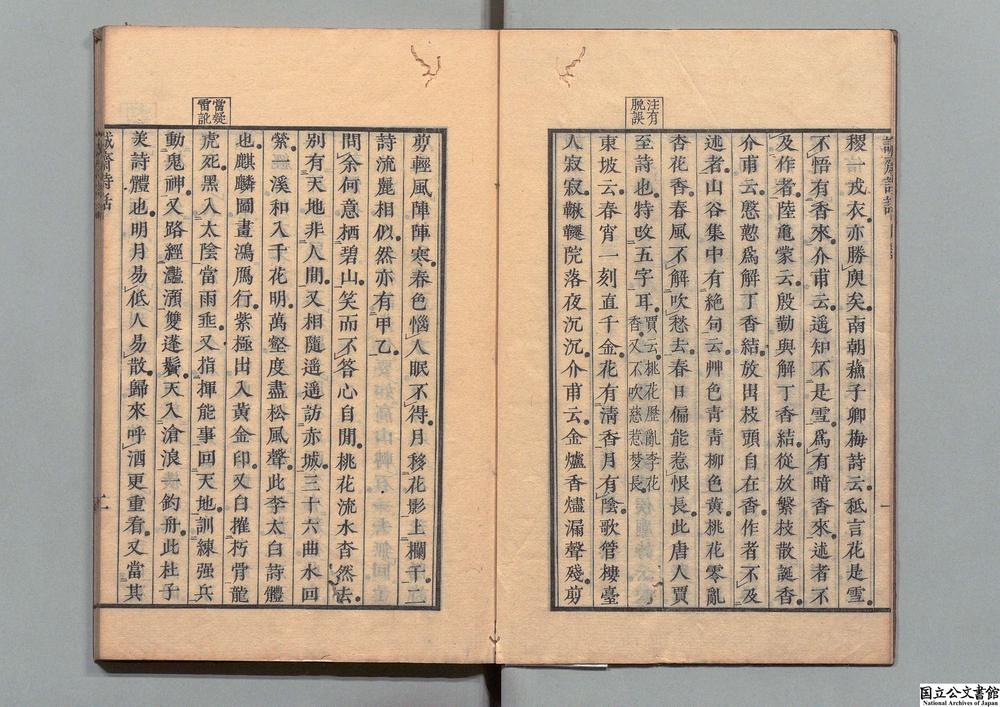 注有
脫誤
稷一戎衣亦勝庾矣南朝蘓子卿梅詩云秪言花是雪
不悟有香來介甫云遥知不是雪爲有暗香來述者不
及作者陸亀蒙云殷勤與解丁香結從放繁枝散誕香
介甫云慇懃爲解丁香結放出枝頭自在香作者不及
述者山谷集中有絶句云艸色青青柳色黄桃花零亂
杏花香春風不解吹愁去春日偏能惹恨長此唐人賈
至詩也特改五字耳賈云桃花歷亂李花香又不吹愁惹梦長
東坡云春宵一刻直千金花有淸香月有陰歌管樓臺
人寂寂鞦韆院落夜沉沉介甫云金爐香燼漏聲殘剪
當疑
雷訛
剪輕風陣陣寒春色惱人眠不得月移花影上欄干二
詩流麗相似然亦有甲乙
問余何意栖碧山笑而不答心自閒桃花流水杳然去
别有天地非人間又相隨遥遥訪赤城三十六曲水回
縈一溪和入千花明萬壑度盡松風聲此李太白詩體
也麒麟圖畫鴻鴈行紫極出入黄金印又白摧朽骨龍
虎死黑入太陰當雨垂又指揮能事回天地訓練强兵
動鬼神又路經灩澦雙蓬鬢天入滄浪一釣舟此杜子
美詩體也明月易低人易散歸來呼酒更重看又當其
誠齋詩話
二
国立公文書館
National Archives of Japan